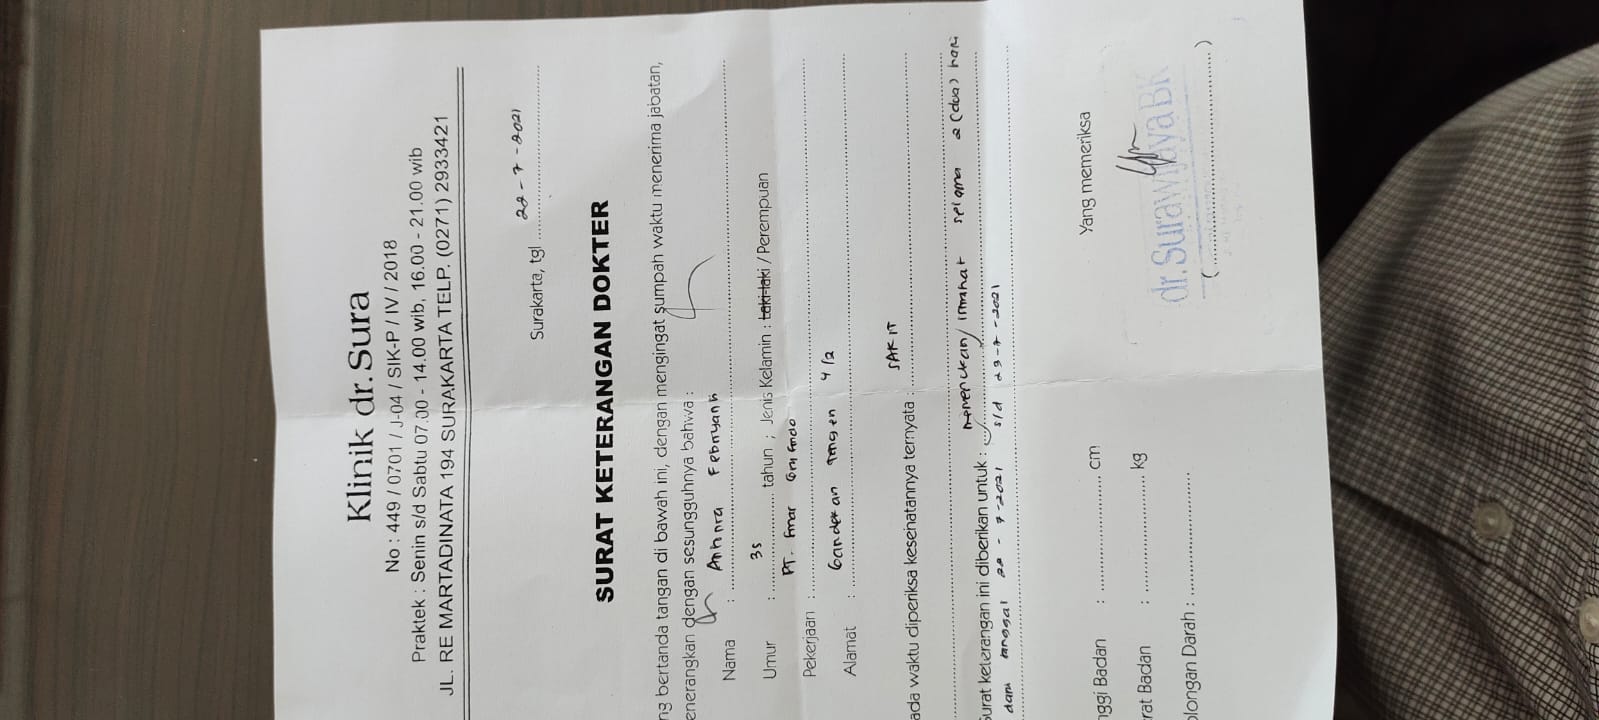 Klinik dr.Sura
No : 449 / 0701 / J-04 / SIK-P / IV / 2018
Praktek : Senin s/d Sabtu 07.00 - 14.00 wib, 16.00 - 21.00 wib
JL. RE MARTADINATA 194 SURAKARTA TELP. (0271) 2933421
Surakarta, tgl 28-7-2021
SURAT KETERANGAN DOKTER
ng bertanda tangan di bawah ini, dengan mengingat sumpah waktu menerima jabatan,
enerangkan dengan sesungguhnya bahwa :
Nama : Febriyanti
Umur : 35 tahun ; Jenis Kelamin : Laki-laki / Perempuan
Pekerjaan : PT.
Alamat : 4/2
ada waktu diperiksa kesehatannya ternyata : SAKIT
Surat keterangan ini diberikan untuk : selama 2 (dua) hari
dari tanggal 28-7-2021 s/d 29-7-2021
nggi Badan : cm
Yang memeriksa
rat Badan : kg
olongan Darah :
dr.Surawijaya BK